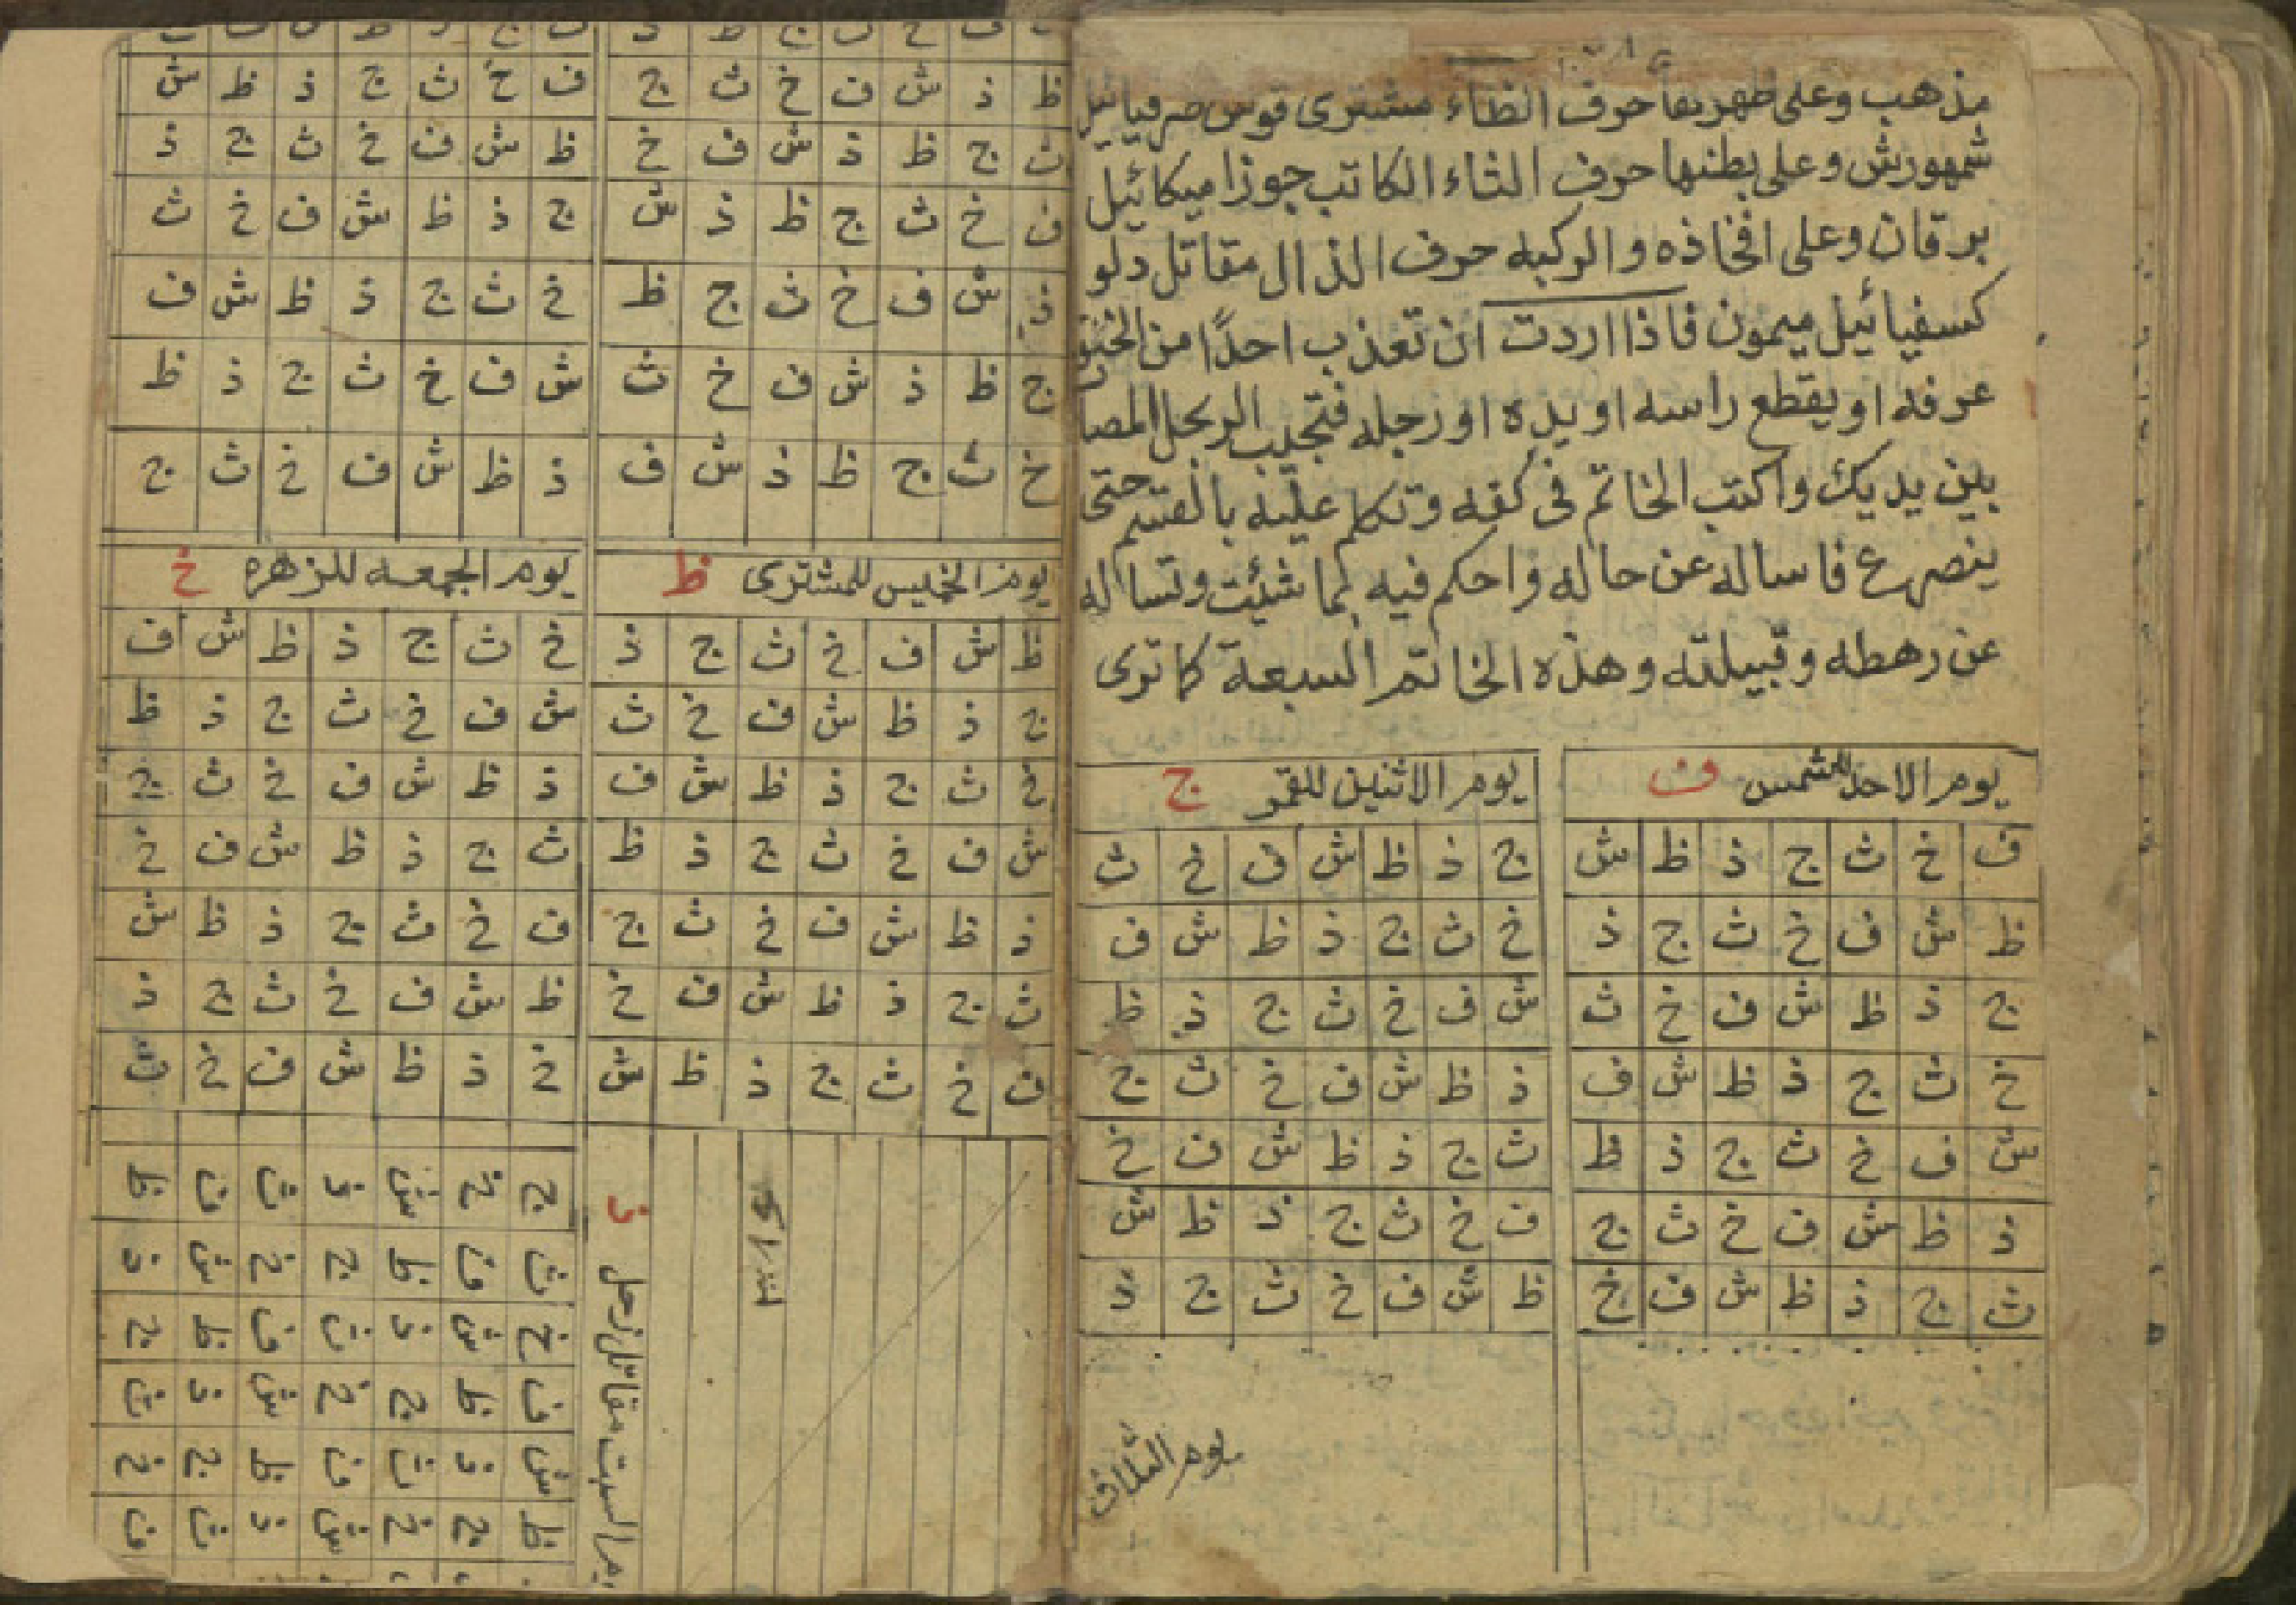 مذهب وعلى ظهرها حرف الظاء مشترى قوس صرفيائيل
شمهورش وعلى بطنها حرف الثاء الكاتب جوزا ميكائيل
برقان وعلى افخاذه والركبه حرف الذال مقاتل دلو
كسفيائيل ميمون فاذا اردت ان تعذب احدًا من
عرفه او يقطع راسه او يده او رجله فتجلب الرجل المصا
بين يديك واكتب الخاتم فى كفه وتكلم عليه بالقسم حتى
ينصرع فاساله عن حاله واحكم فيه بما شئت وتساله
عن رهطه وقبيلته وهذه الخاتم السبعة كما ترى
يوم الاحد للشمس ف
ف خ ث ج ذ ظ ش
ظ ش ف خ ث ج ذ
ج ذ ظ ش ف خ ث
خ ث ج ذ ظ ش ف
ش ف خ ث ج ذ ظ
ذ ظ ش ف خ ث ج
ث ج ذ ظ ش ف خ
يوم الاثنين للقمر ج
ج ذ ظ ش ف خ ث
خ ث ج ذ ظ ش ف
ش ف خ ث ج ذ ظ
ذ ظ ش ف خ ث ج
ث ج ذ ظ ش ف خ
ف خ ث ج ذ ظ ش
ظ ش ف خ ث ج ذ
يوم الثلاث
ظ ذ ش ف خ ث ج
ث ج ظ ذ ش ف خ
ف خ ث ج ظ ذ ش
ذ ش ف خ ث ج ظ
ج ظ ذ ش ف خ ث
خ ث ج ظ ذ ش ف
ف خ ث ج ذ ظ ش
ظ ش ف خ ث ج ذ
ج ذ ظ ش ف خ ث
خ ث ج ذ ظ ش ف
ش ف خ ث ج ذ ظ
ذ ظ ش ف خ ث ج
يوم الخميس للمشترى ظ
ظ ش ف خ ث ج ذ
ج ذ ظ ش ف خ ث
خ ث ج ذ ظ ش ف
ش ف خ ث ج ذ ظ
ذ ظ ش ف خ ث ج
ث ج ذ ظ ش ف خ
ف خ ث ج ذ ظ ش
يوم الجمعه للزهره خ
خ ث ج ذ ظ ش ف
ش ف خ ث ج ذ ظ
ذ ظ ش ف خ ث ج
ث ج ذ ظ ش ف خ
ف خ ث ج ذ ظ ش
ظ ش ف خ ث ج ذ
خ ذ ظ ش ف خ ث
يوم السبت مقاتل زحل ذ
ظ ذ ج ث خ ف
ف ش خ ظ ج ث
ث خ ج ف ش ذ
ذ ج ظ ث خ ش
ش ظ ف ذ ج خ
خ ف ش ج ث ظ
ج ث خ ف ش ظ